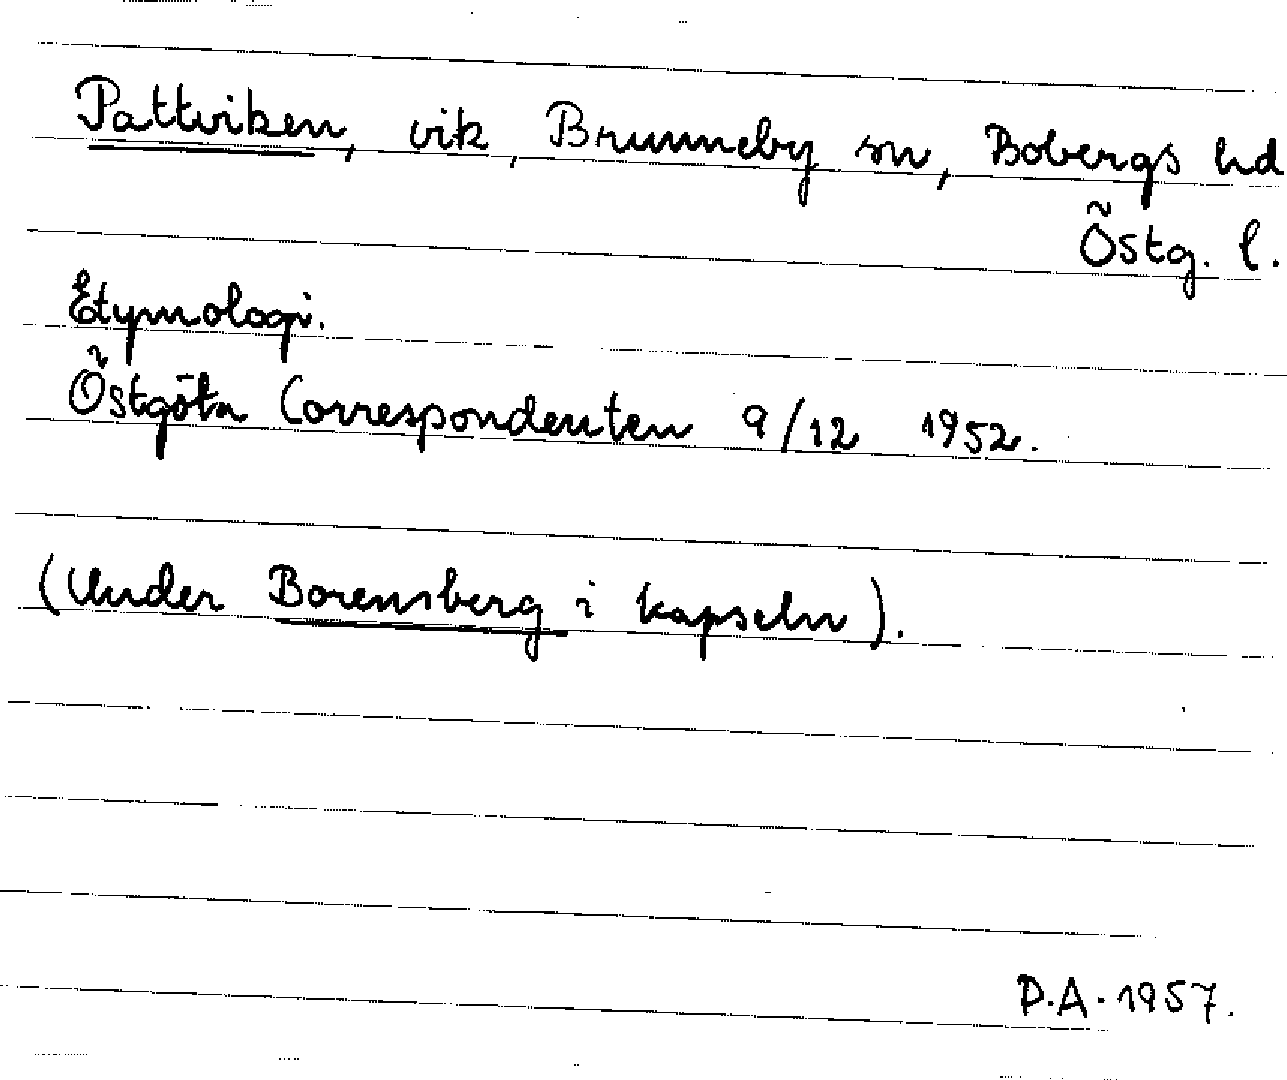 Pattviken, vik, Brunneby sn, Bobergs hd
Östg. l.
Etymologi.
Östgöta Correspondenten 9/12 1952.
(Under Borensberg i kapseln).
P.A. 1957.